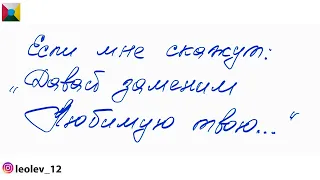 Если мне скажут:
„Давай заменим
Любимую твою..."
leolev_12